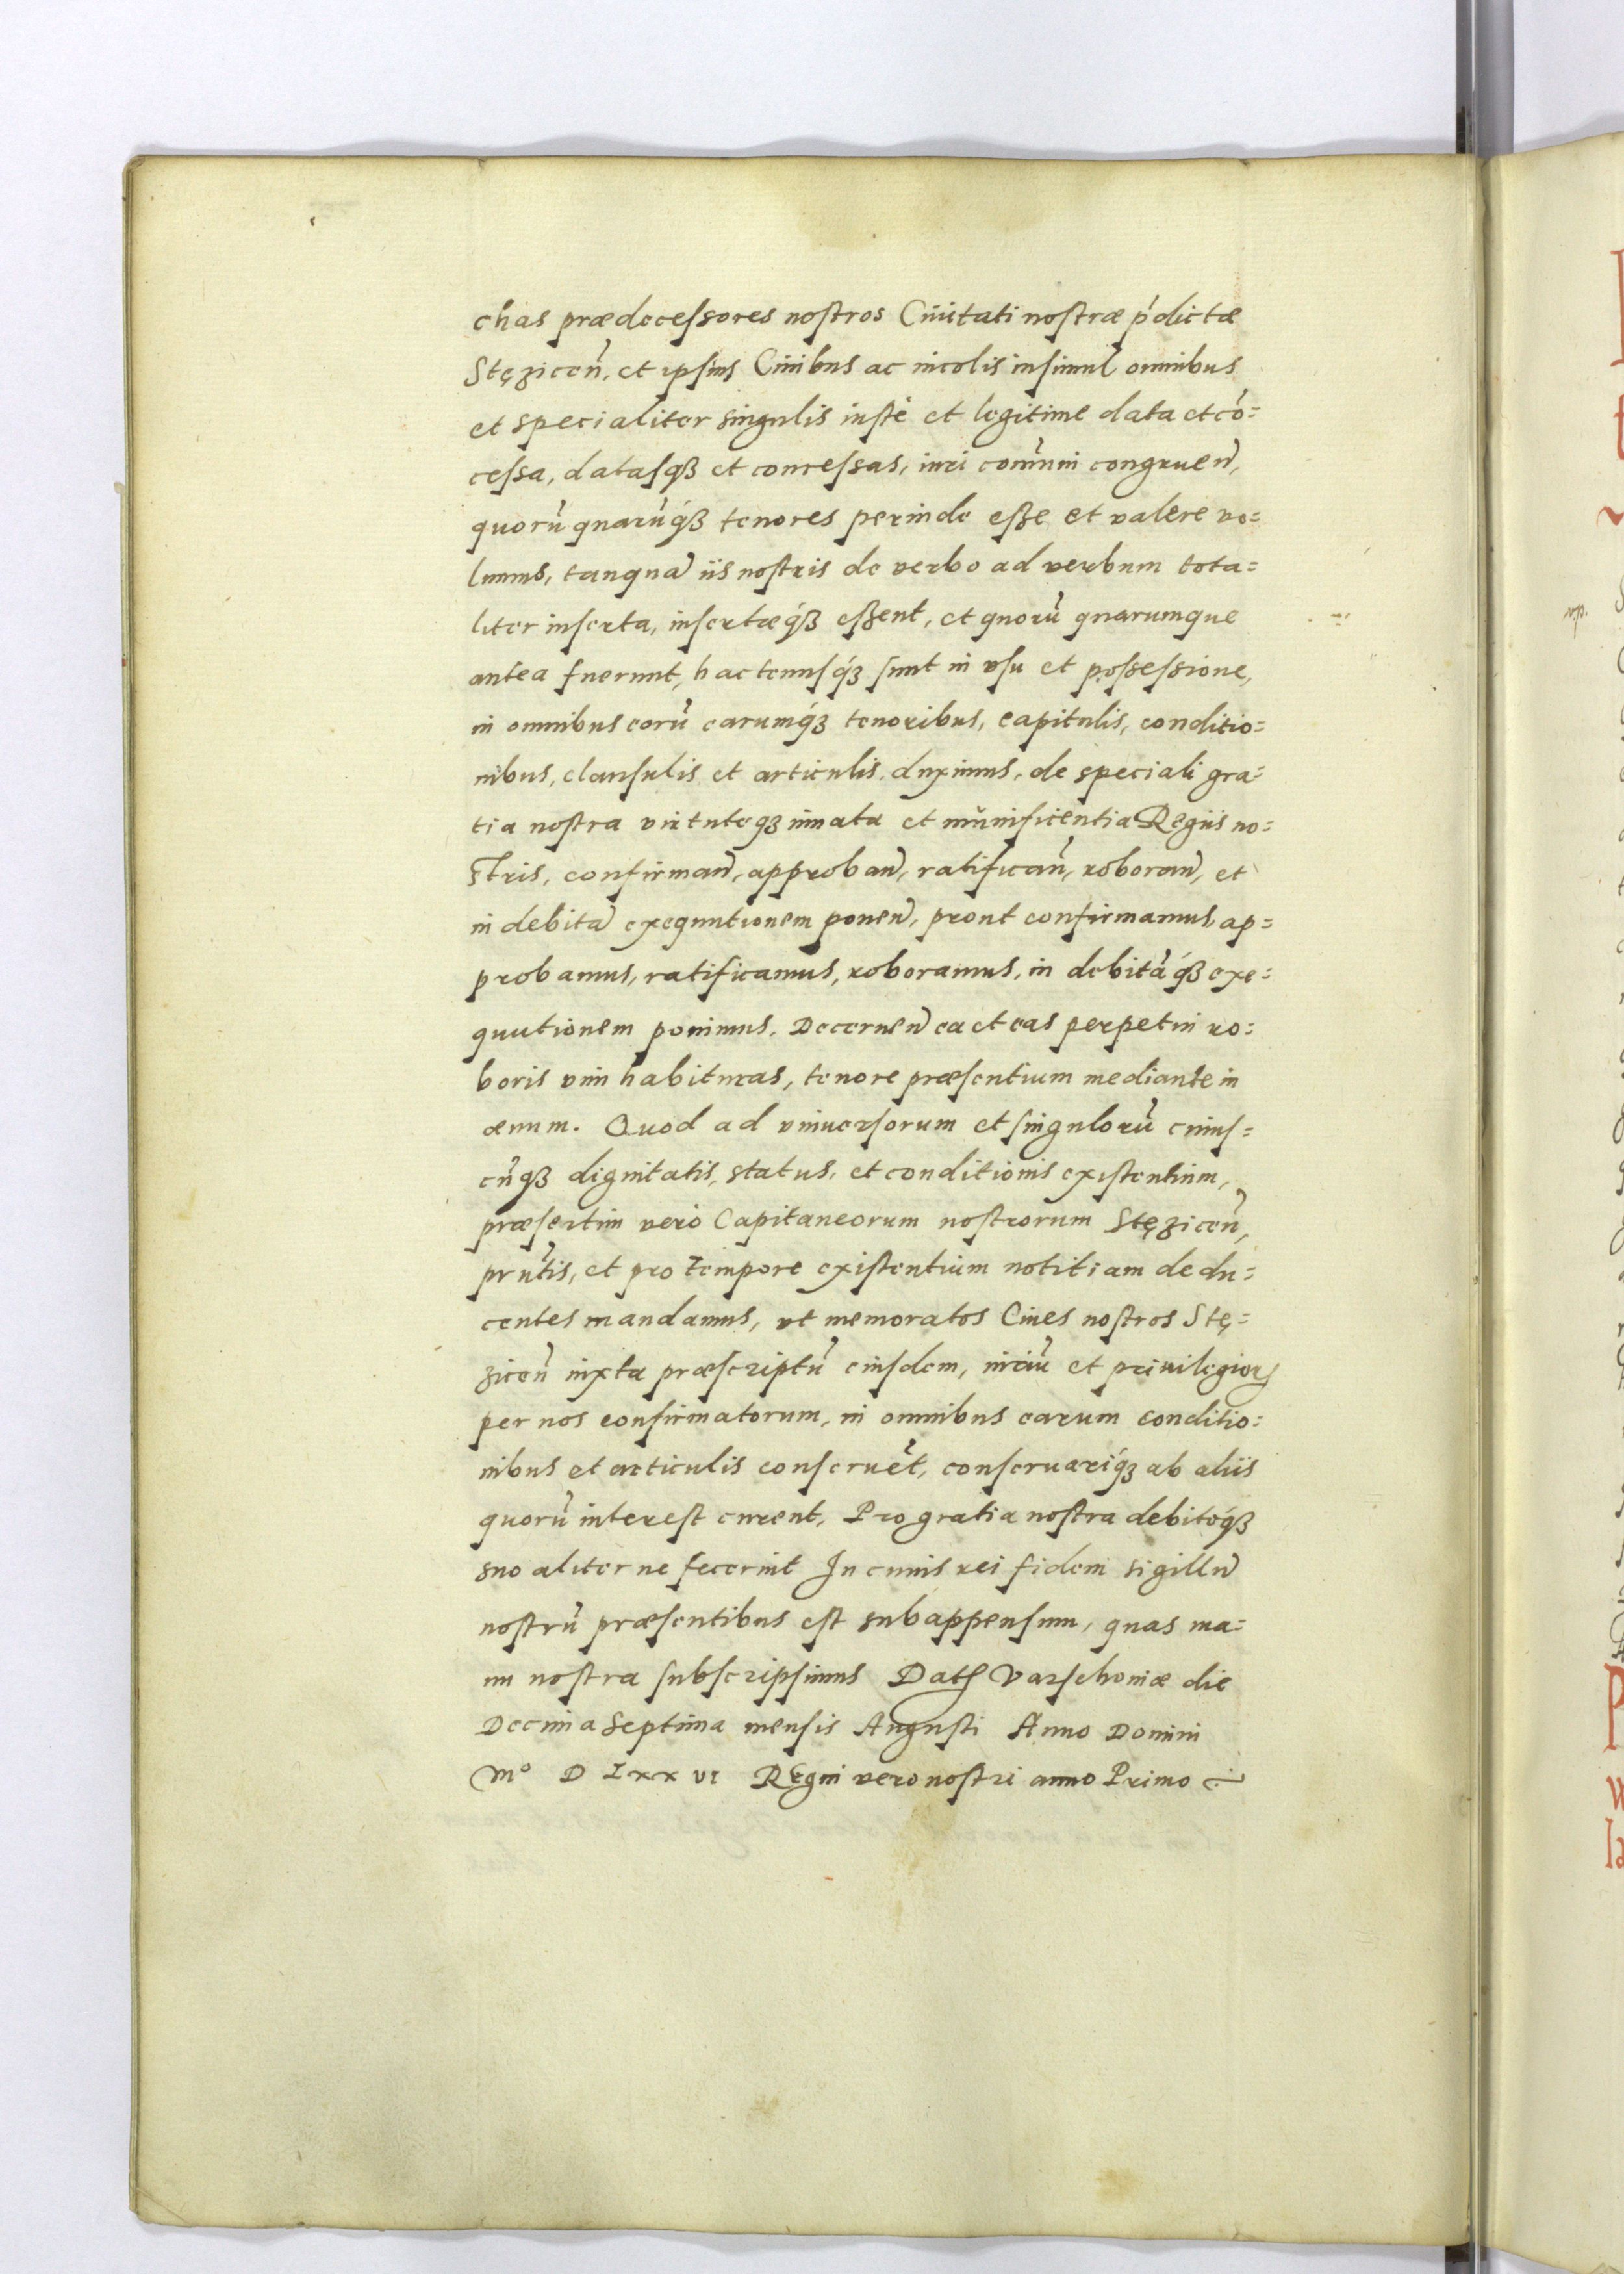 chas prædecessores nostros Ciuitati nostræ p̓dictæ
Stęzicen̄, et ipsius Ciuibus ac incolis insimul omnibus
et specialiter singulis iustè et legitime data et cō=
cessa, datasq́ꝫ et concessas, iuri com̄uni congruen̄,
quorū quarūq́ꝫ tenores perinde esse et valere vo=
lumus, tanquā iis nostris de verbo ad verbum tota=
liter inserta, insertæq́ꝫ essent, et quorū quarumque
antea fuerunt, hactenusq́ꝫ sunt in vsu et possessione,
in omnibus eorū earumq́ꝫ tenoribus, capitulis, conditio=
nibus, clausulis et articulis, duximus, de speciali gra=
tia nostra virtuteqꝫ innata et munificentia Regiis no=
stris, confirman̄, approban̄, ratifican̄, roboran̄, et
in debitā exequutionem ponen̄, prout confirmamus, ap=
probamus, ratificamus, roboramus, in debitāq́ꝫ exe=
quutionem ponimus. Decernen̄ ea et eas perpetui ro=
boris vim habituras, tenore præsentium mediante in
æuum. Quod ad vniuersorum et singulorū cuius=
cūqꝫ dignitatis, status, et conditionis existentium,
præsertim verò Capitaneorum nostrorum Stęzicen̄,
pr̄ntis, et pro tempore existentium notitiam dedu=
centes mandamus, vt memoratos Ciues nostros Stę=
zicen̄ iuxta præscriptū eiusdem, iuriū et priuilegioꝝ
per nos confirmatorum, in omnibus earum conditio=
nibus et articulis conseruēt, conseruariq́ꝫ ab aliis
quorū interest curent, Pro gratia nostra debitoq́ꝫ
suo aliter ne fecerint In cuius rei fidem sigillū
nostrū præsentibus est subappensum, quas ma=
nu nostra subscripsimus Datꝭ Varschouiæ die
Decima Septima mensis Augusti Anno Domini
Mº D Lxx vi Regni vero nostri anno Primo